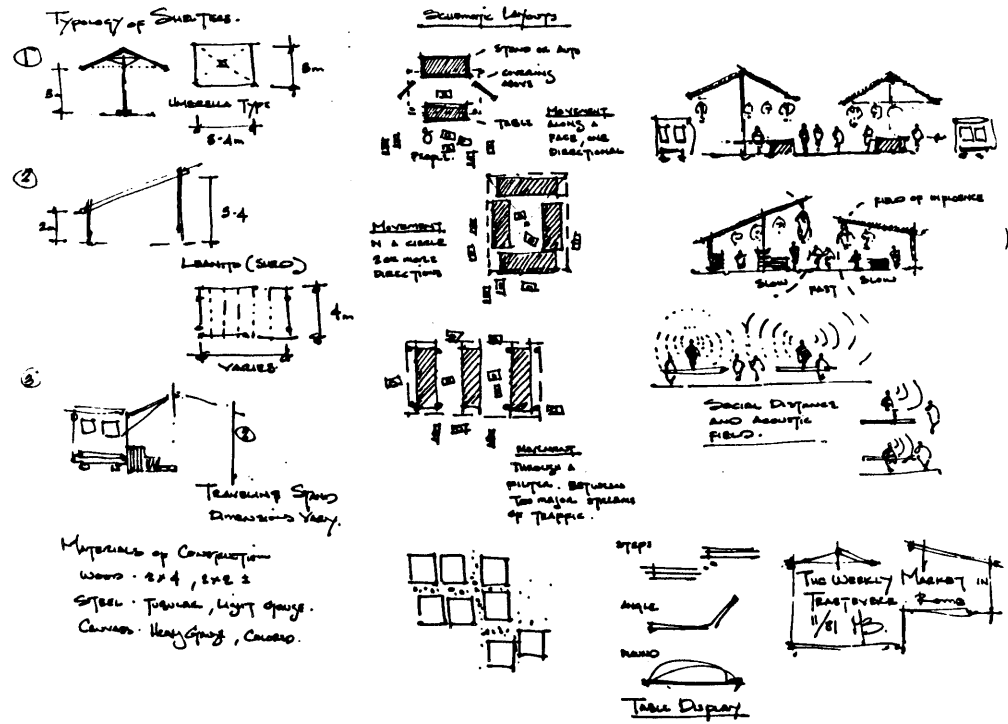 Typology of Shelters.
1
3m
3m
Umbrella Type
3-4m
2
2m
3-4
Leanto (Shed)
4m
Varies
3
Traveling Stand
Dimensions Vary.
Materials of Construction
Wood - 2x4, 2x2
Steel - Tubular, Light Gauge.
Canvas - Heavy Gauge, Colored.
Schematic Layouts
Stand or Auto
Covering
Above
Table
People
Movement
Along a
Face, One
Directional
Movement
in a Circle
2 or more
Directions
Movement
Through a
Filter. Between
Two major streams
of Traffic.
Field of Influence
Slow
Fast
Slow
Social Distance
and Acoustic
Field.
Steps
Angle
Mound
Table Display
The Weekly Market in
Trastevere Rome
11/81